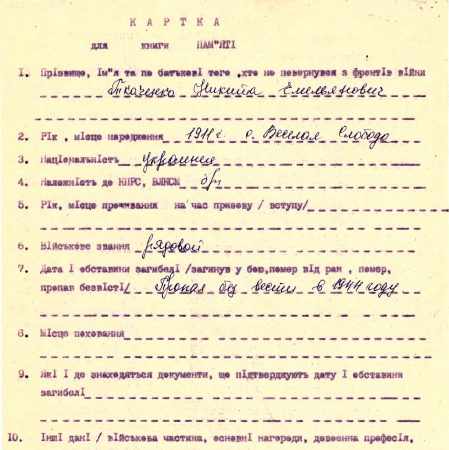 КАРТКА
для книги ПАМ"ЯТІ
1. Прізвище, ім"я та по батькові того ,хто не повернувся з фронтів війни
Ткаченко Никита Емельянович
2. Рік , місце народження 1911 г. с. Веселая Слобода
3. Національність украинец
4. Належність до КПРС, ВЛКСМ б/п
5. Рік, місце проживання на час призову / вступу/
6. Військове звання рядовой
7. Дата і обставини загибелі /загинув у бою,помер від ран , помер,
пропав безвісті/ Пропал без вести в 1944 году
8. Місце поховання
9. Які і де знаходяться документи, що підтверджують дату і обставини
загибелі
10. Інші дані / військова частина, основні нагороди, довоєнна професія,